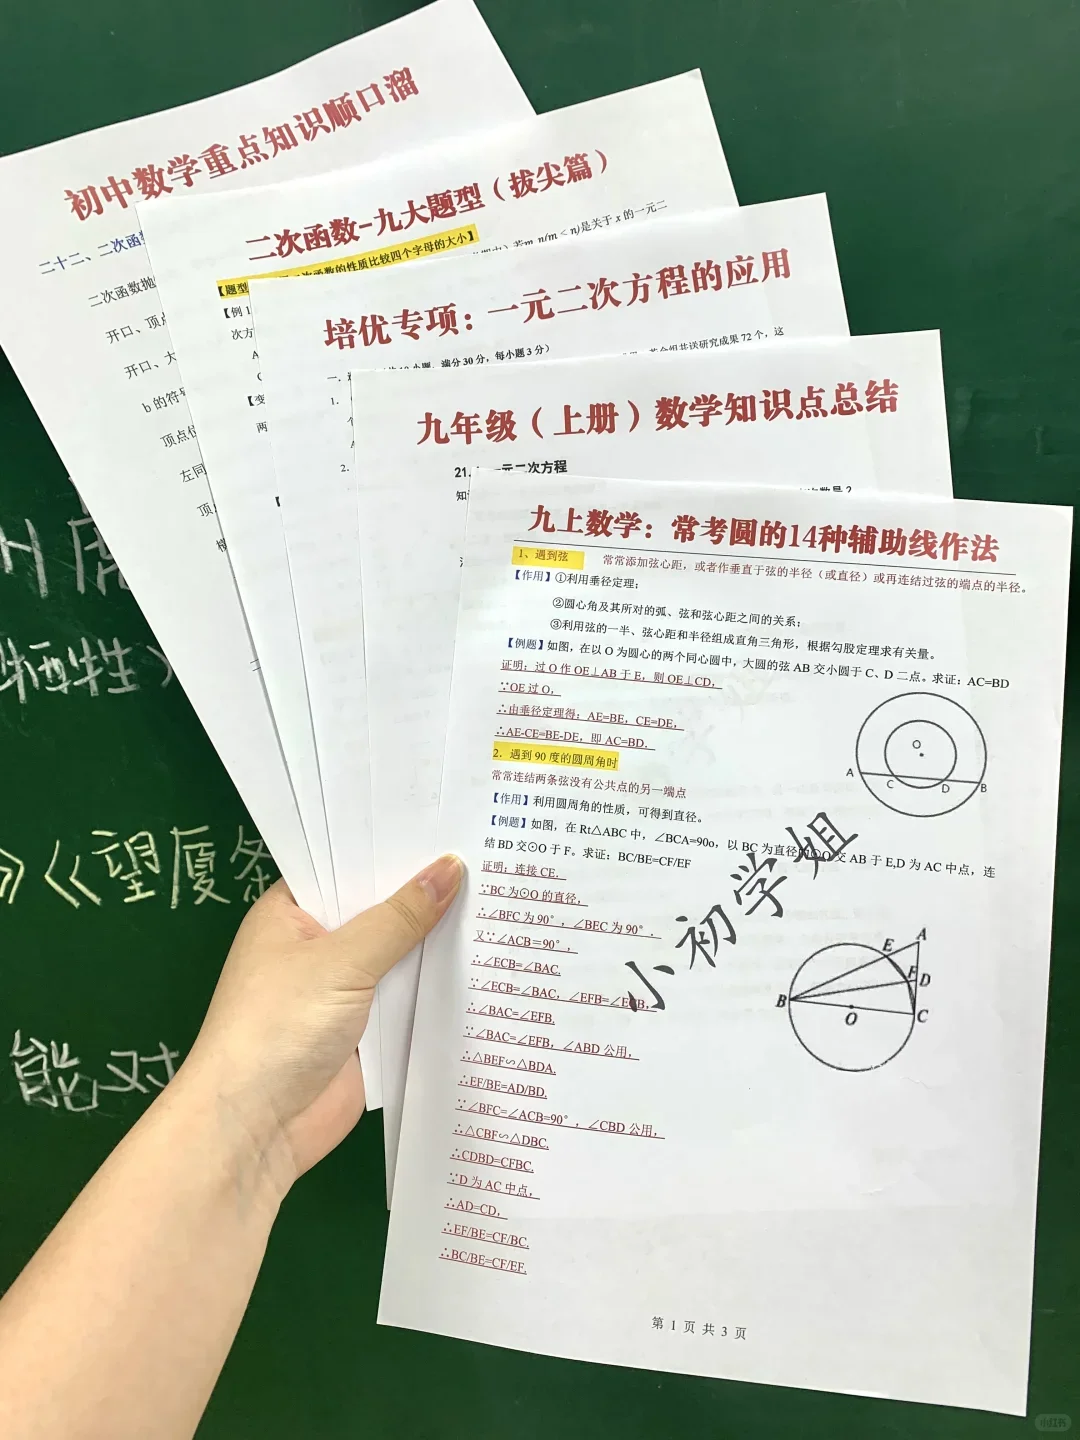 初中数学重点知识顺口溜
二十二、二次函数
二次函数抛
开口、顶点
开口、大
b的符号
顶点位
左同
顶点
二次函数-九大题型（拔尖篇）
函数的性质比较四个字母的大小】
【题型
若m,n(m<n)是关于x的一元二
【例1
次方
A
C
【变
两
培优专项：一元二次方程的应用
小题，满分30分，每小题3分）
全组共送研究成果72个，这
1.
个
2.
九年级（上册）数学知识点总结
21. 一元二次方程
知
九上数学：常考圆的14种辅助线作法
1、遇到弦 常常添加弦心距，或者作垂直于弦的半径（或直径）或再连结过弦的端点的半径。
【作用】①利用垂径定理；
②圆心角及其所对的弧、弦和弦心距之间的关系；
③利用弦的一半、弦心距和半径组成直角三角形，根据勾股定理求有关量。
【例题】如图，在以O为圆心的两个同心圆中，大圆的弦AB交小圆于C、D二点。求证：AC=BD
证明：过O作OE⊥AB于E，则OE⊥CD，
∵OE过O，
∴由垂径定理得：AE=BE，CE=DE，
∴AE-CE=BE-DE，即AC=BD．
O
A C D B
2．遇到90度的圆周角时
常常连结两条弦没有公共点的另一端点
【作用】利用圆周角的性质，可得到直径。
【例题】如图，在Rt△ABC中，∠BCA=90o，以BC为直径的⊙O交AB于E,D为AC中点，连
结BD交⊙O于F。求证：BC/BE=CF/EF
证明：连接CE．
∵BC为⊙O的直径，
∴∠BFC为90°，∠BEC为90°．
又∵∠ACB=90°，
∴∠ECB=∠BAC.
∵∠ECB=∠BAC，∠EFB=∠ECB，
∴∠BAC=∠EFB.
∵∠BAC=∠EFB，∠ABD公用，
∴△BEF∽△BDA.
∴EF/BE=AD/BD.
∵∠BFC=∠ACB=90°，∠CBD公用，
∴△CBF∽△DBC.
∴CDBD=CFBC.
∵D为AC中点，
∴AD=CD，
∴EF/BE=CF/BC.
∴BC/BE=CF/EF.
A
E
F D
B
O C
小初学姐
第 1 页 共 3 页
牺牲）
》《望厦条
能对
小红书